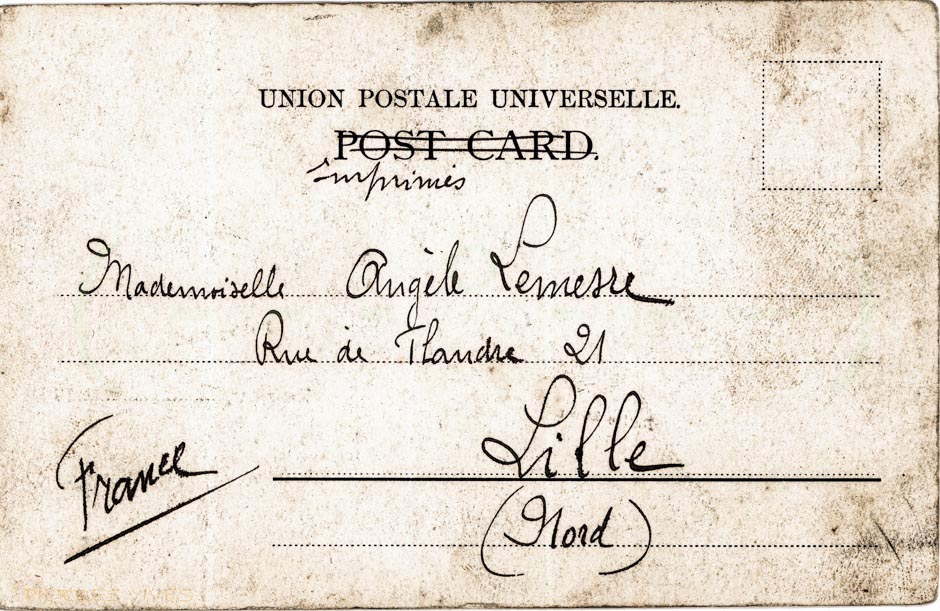 UNION POSTALE UNIVERSELLE.
POST CARD.
Imprimés
Mademoiselle Angèle Lemesre
Rue de Flandre 21
Lille
France
(Nord)